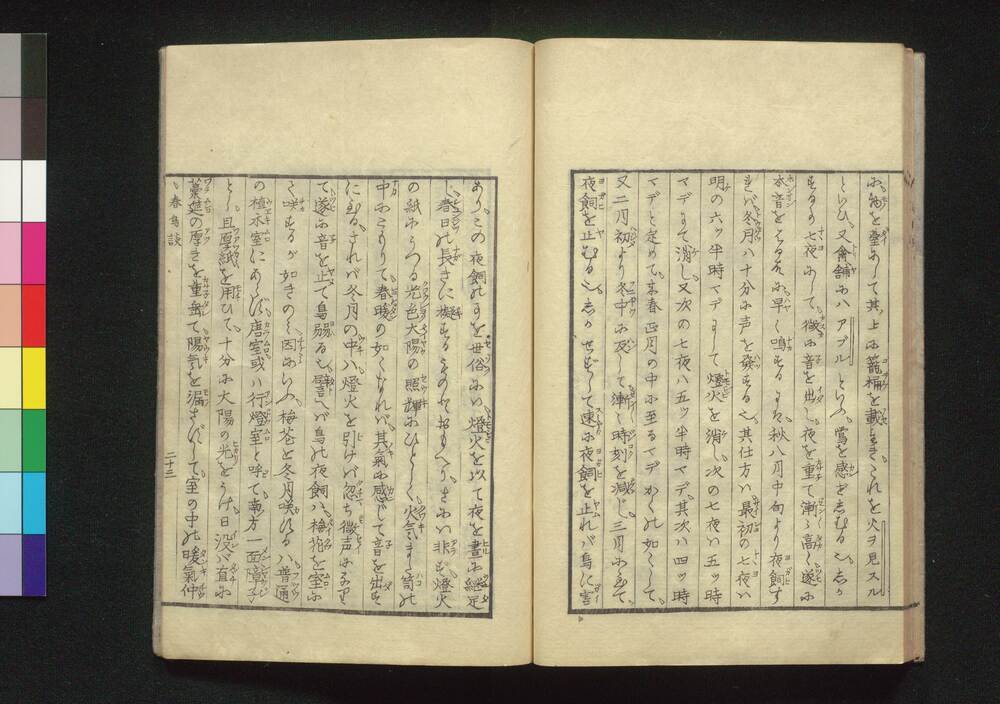 に物を臺にして其上に籠桶を載おきこれを火ヲ見スル
といひ又禽舗にハアブルといふ鶯を感ぜしむる也しか
するの七夜にして微に音を出し夜を重て漸〻高く遂に
本音をはるなり早く鳴するには秋八月中旬より夜飼す
れバ冬月ハ十分に声を發する也其仕方ハ最初の七夜ハ
明の六ッ半時マデにして燈火を消し次の七夜ハ五ッ時
マデにて消し又次の七夜ハ五ッ半時マデ其次ハ四ッ時
マデと定めて来春正月の中に至るマデかくの如くして
又二月初より冬中に反して漸〻時刻を減じ三月にいたりて
夜飼を止むる也しかせずして速に夜飼を止れバ鳥に害
ありこの夜飼のすを世俗にハ燈火を以て夜を晝に継足
し春日の長きに擬するものとおもへりさにハ非ず燈火
の紙にうつる光色大陽の照輝にひとしく火気また篭の
中にこもりて春暖の如くなれバ其氣に感じて音を出す
にいたるされバ冬月の中ハ燈火を引けバ忽ち微声になり
て遂に音を止て鳥弱る也譬ハバ鳥の夜飼ハ梅花を室に
て咲するが如きのミ因にいふ梅花を冬月咲する八普通
の植木室にあらず唐室或ハ行燈室と呼て南方一面障子
とし且厚紙を用ひて十分に大陽の光をうけ日没バ直に
藁莚の厚きを重垂て陽気を漏さずして室の中の暖氣仲
春鳥談
二十三